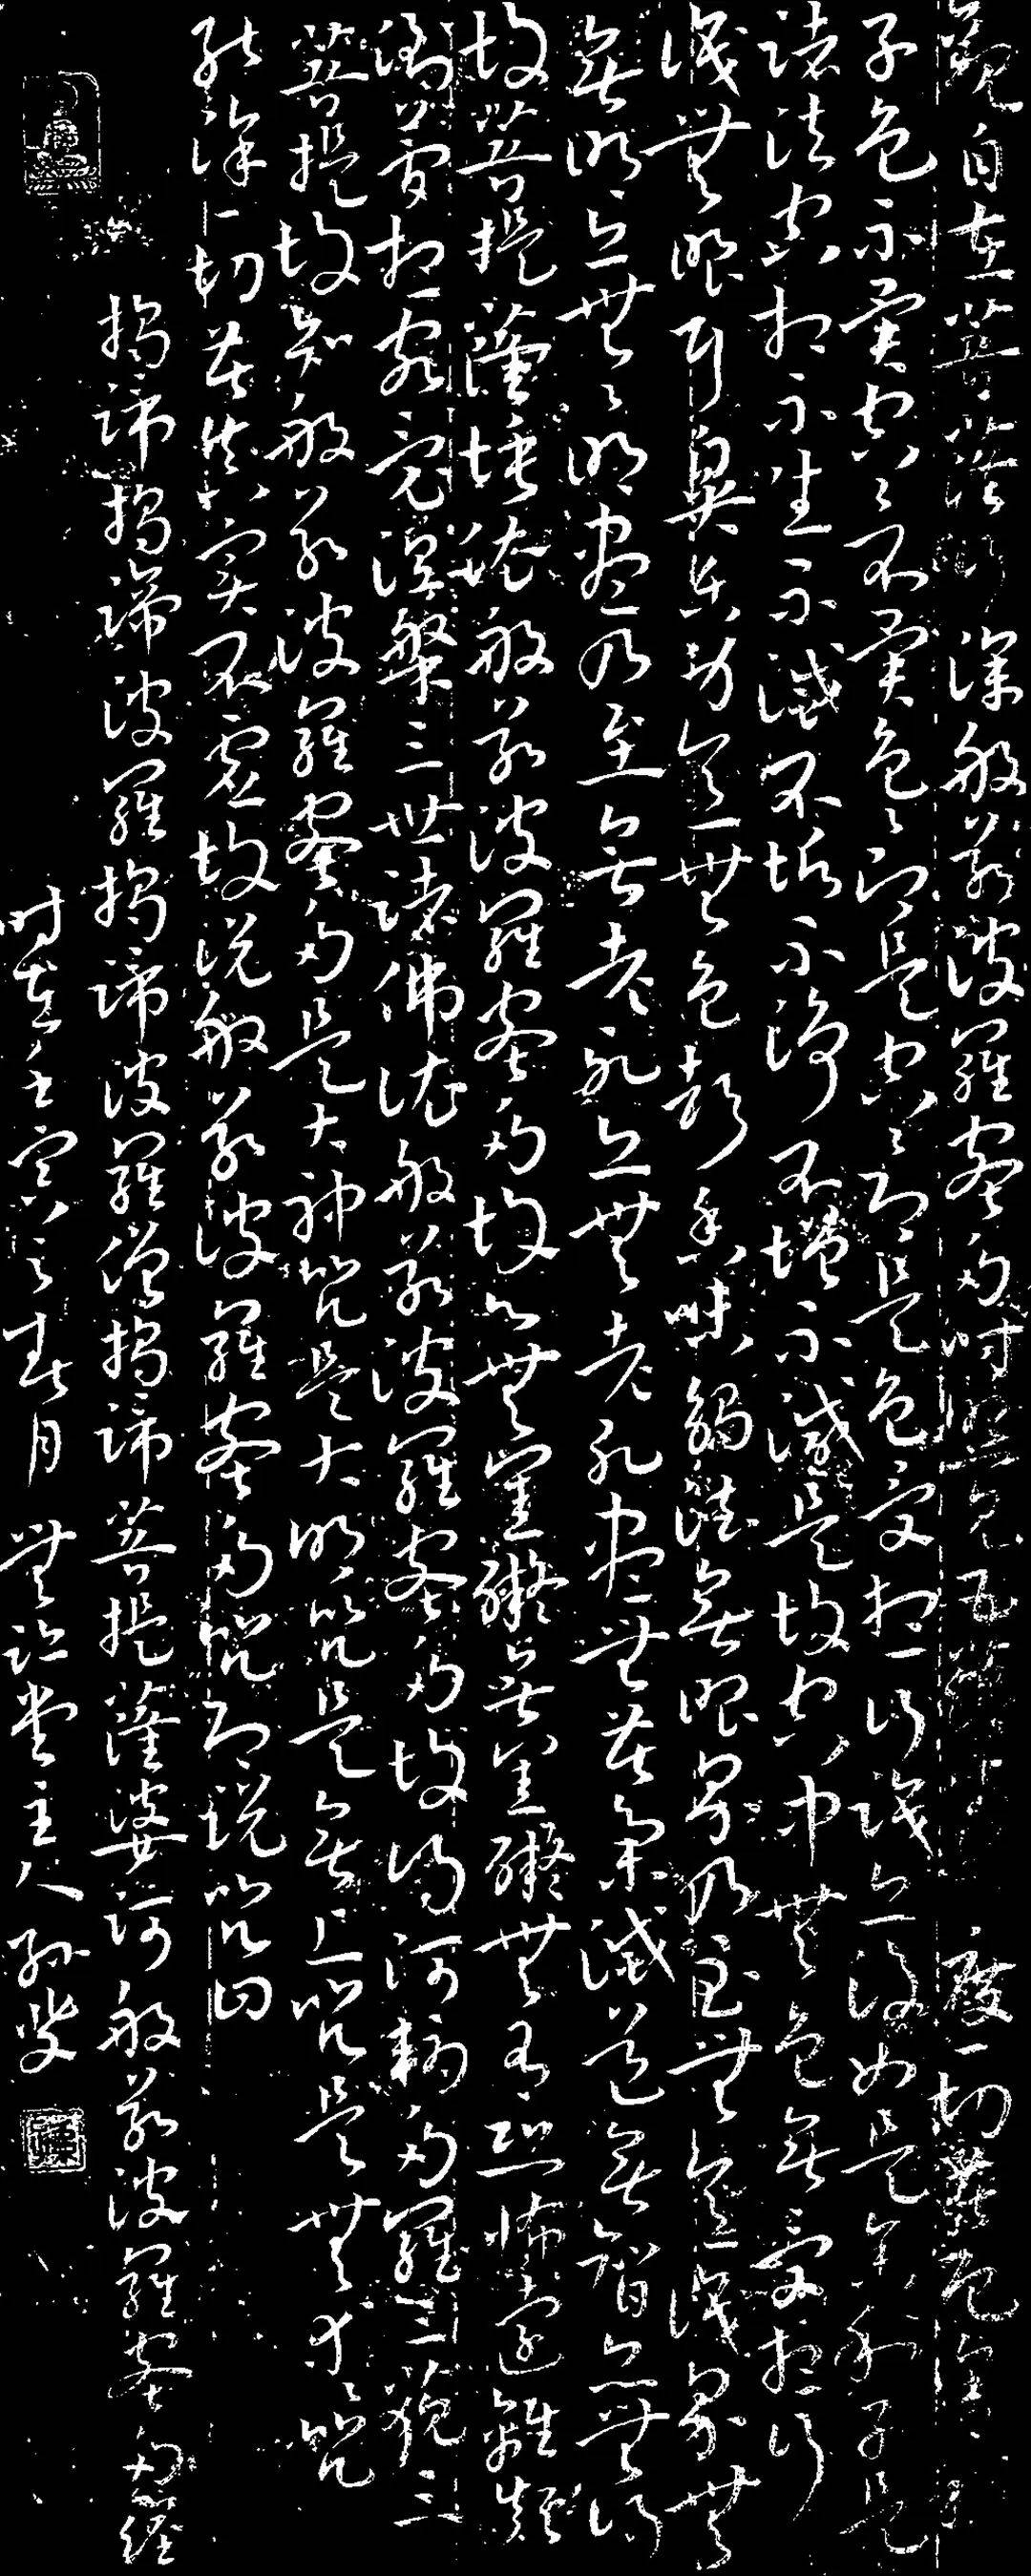 觀自在菩薩行深般若波羅蜜多時照見五蘊皆 度一切苦厄舍利
子色不異空空不異色色即是空空即是色受想行識亦復如是舍利子是
諸法空相不生不滅不垢不淨不增不減是故空中無色無受想行
識無眼耳鼻舌身意無色聲香味觸法無眼界乃至無意識界無
無明亦無無明盡乃至無老死亦無老死盡無苦集滅道無智亦無得
故菩提薩埵依般若波羅蜜多故心無罣礙無罣礙無有恐怖遠離顛
倒夢想究竟涅槃三世諸佛依般若波羅蜜多故得阿耨多羅三藐三
菩提故知般若波羅蜜多是大神咒是大明咒是無上咒是無等等咒
能除一切苦真實不虛故說般若波羅蜜多咒即說咒曰
揭諦揭諦波羅揭諦波羅僧揭諦菩提薩婆訶般若波羅蜜多經
時在壬寅之春月 無 堂主人孫